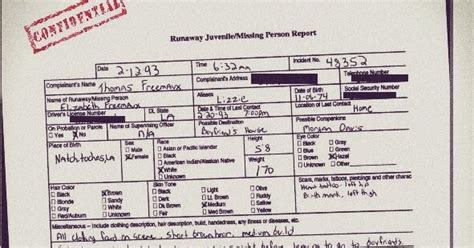 CONFIDENTIAL
Runaway Juvenile/Missing Person Report
Date 2-12-93 Time 6:32 Incident No. 48352
Complainant's Name Thomas Freemavx Complainant's Address Telephone Number
Name of Runaway/Missing Person Elizabeth Freemavx Aliases Lizzie D.O.B. 11-06-74 Social Security Number
Driver's License Number DL State LA Date & Time of Last Contact 2-20-93 7:00pm Location of Last Contact Home
On Probation or Parole Yes No Name of Supervising Officer N/A Possible Destination Boyfriend's House Possible Companions Morgan Davis
Place of Birth Natchitoches, LA
Sex Male Female
Race Asian or Pacific Islander Black American Indian/Alaskan Native White Unknown
Height 5'8
Weight 170
Eye Color Black Green Blue Grey Brown Hazel Other Unknown
Hair Color Black Dk Brown Blonde Lt. Brown Gray Sandy Red/Auburn White
Skin Tone Light Dark Black Lt. Brown Fair Dk. Brown Medium Yellow Unknown
Scars, marks, tattoos, piercings and other
Heart tattoo - left hip
Birth mark, left thigh
Miscellaneous - Include clothing description, hair description, build, handedness, any illness or diseases, etc.
All clothing found on scene, short brown hair, medium build
before leaving to go to boyfriends